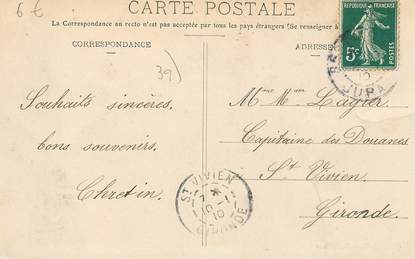 6 €
CARTE POSTALE
La Correspondance au recto n'est pas acceptée par tous les pays étrangers (Se renseigner à
CORRESPONDANCE
ADRESSE
39)
5c
POSTES
JURA
Souhaits sincères,
bons souvenirs.
Chretin.
Mme Mr Lagier
Capitaine des Douanes
St Vivien
Gironde.
ST VIVIEN
GIRONDE